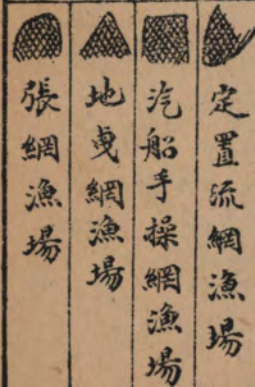 定置流網漁場
汽船手操網漁場
地曳網漁場
張網漁場